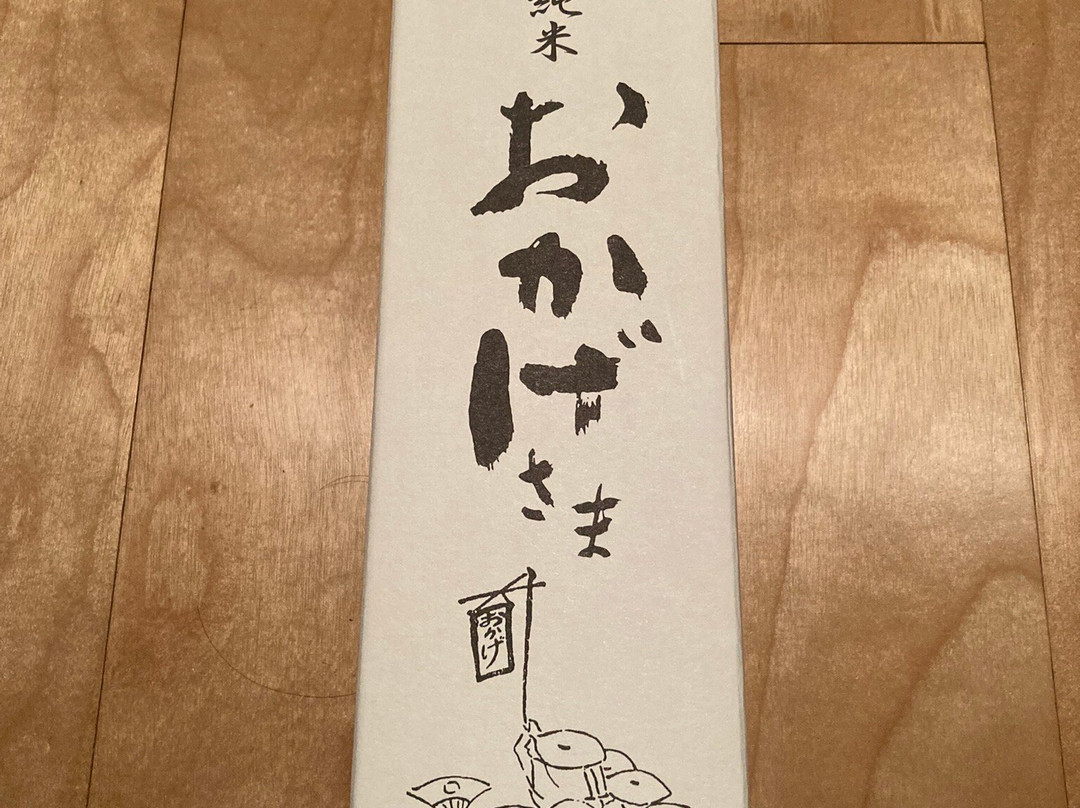 純米
おかげさま
おかげ